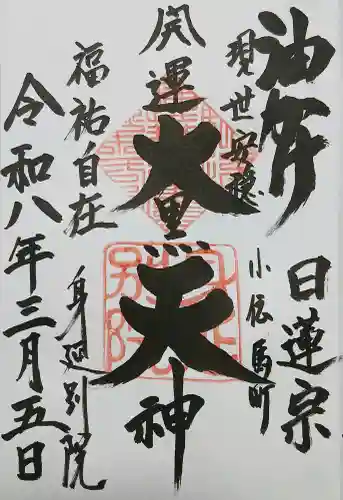 油
日蓮宗
現世安穏
小伝馬町
開運
大黒天神
福祐自在
身延別院
令和八年三月五日
身延
別院